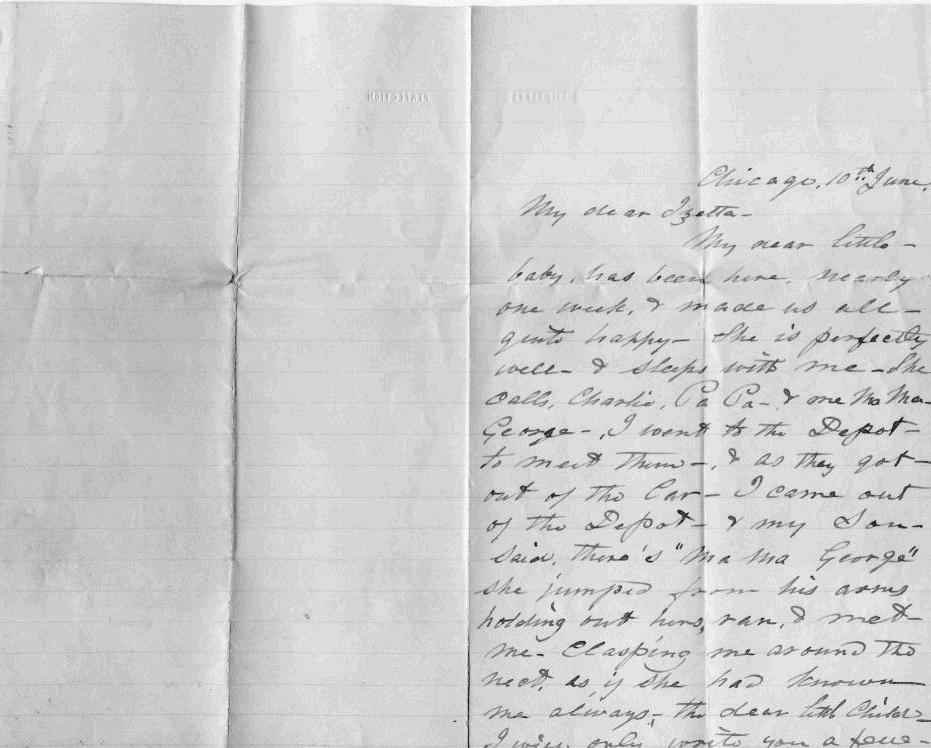 Chicago, 10th June,
My dear Izetta-
My dear little-
baby, has been here, nearly
one week, & made us all-
quite happy- She is perfectly
well- & sleeps with me- She
calls, Charlie, Pa Pa- & me Ma Ma-
George-, I went to the Depot-
to meet them-, & as they got-
out of the Car- I came out
of the Depot- & my Son-
said, there's "Ma Ma George"
she jumped from his arms
holding out hers, ran, & met-
me- Clasping me around the
neck, as if she had known
me always,- the dear little Child-
I will only write you a few-